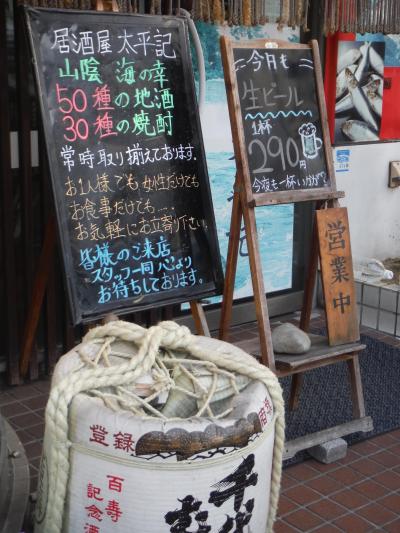 居酒屋 太平記
山陰 海の幸
50種の地酒
30種の焼酎
常時取り揃えております.
お1人様でも 女性だけでも
お食事だけでも....
お気軽にお立寄り下さい。
皆様のご来店
スタッフ一同 心より
お待ちしております。
今月も
生ビール
1杯
290円
今夜も一杯いかが?
営業中
登録
百寿
記念酒
千代